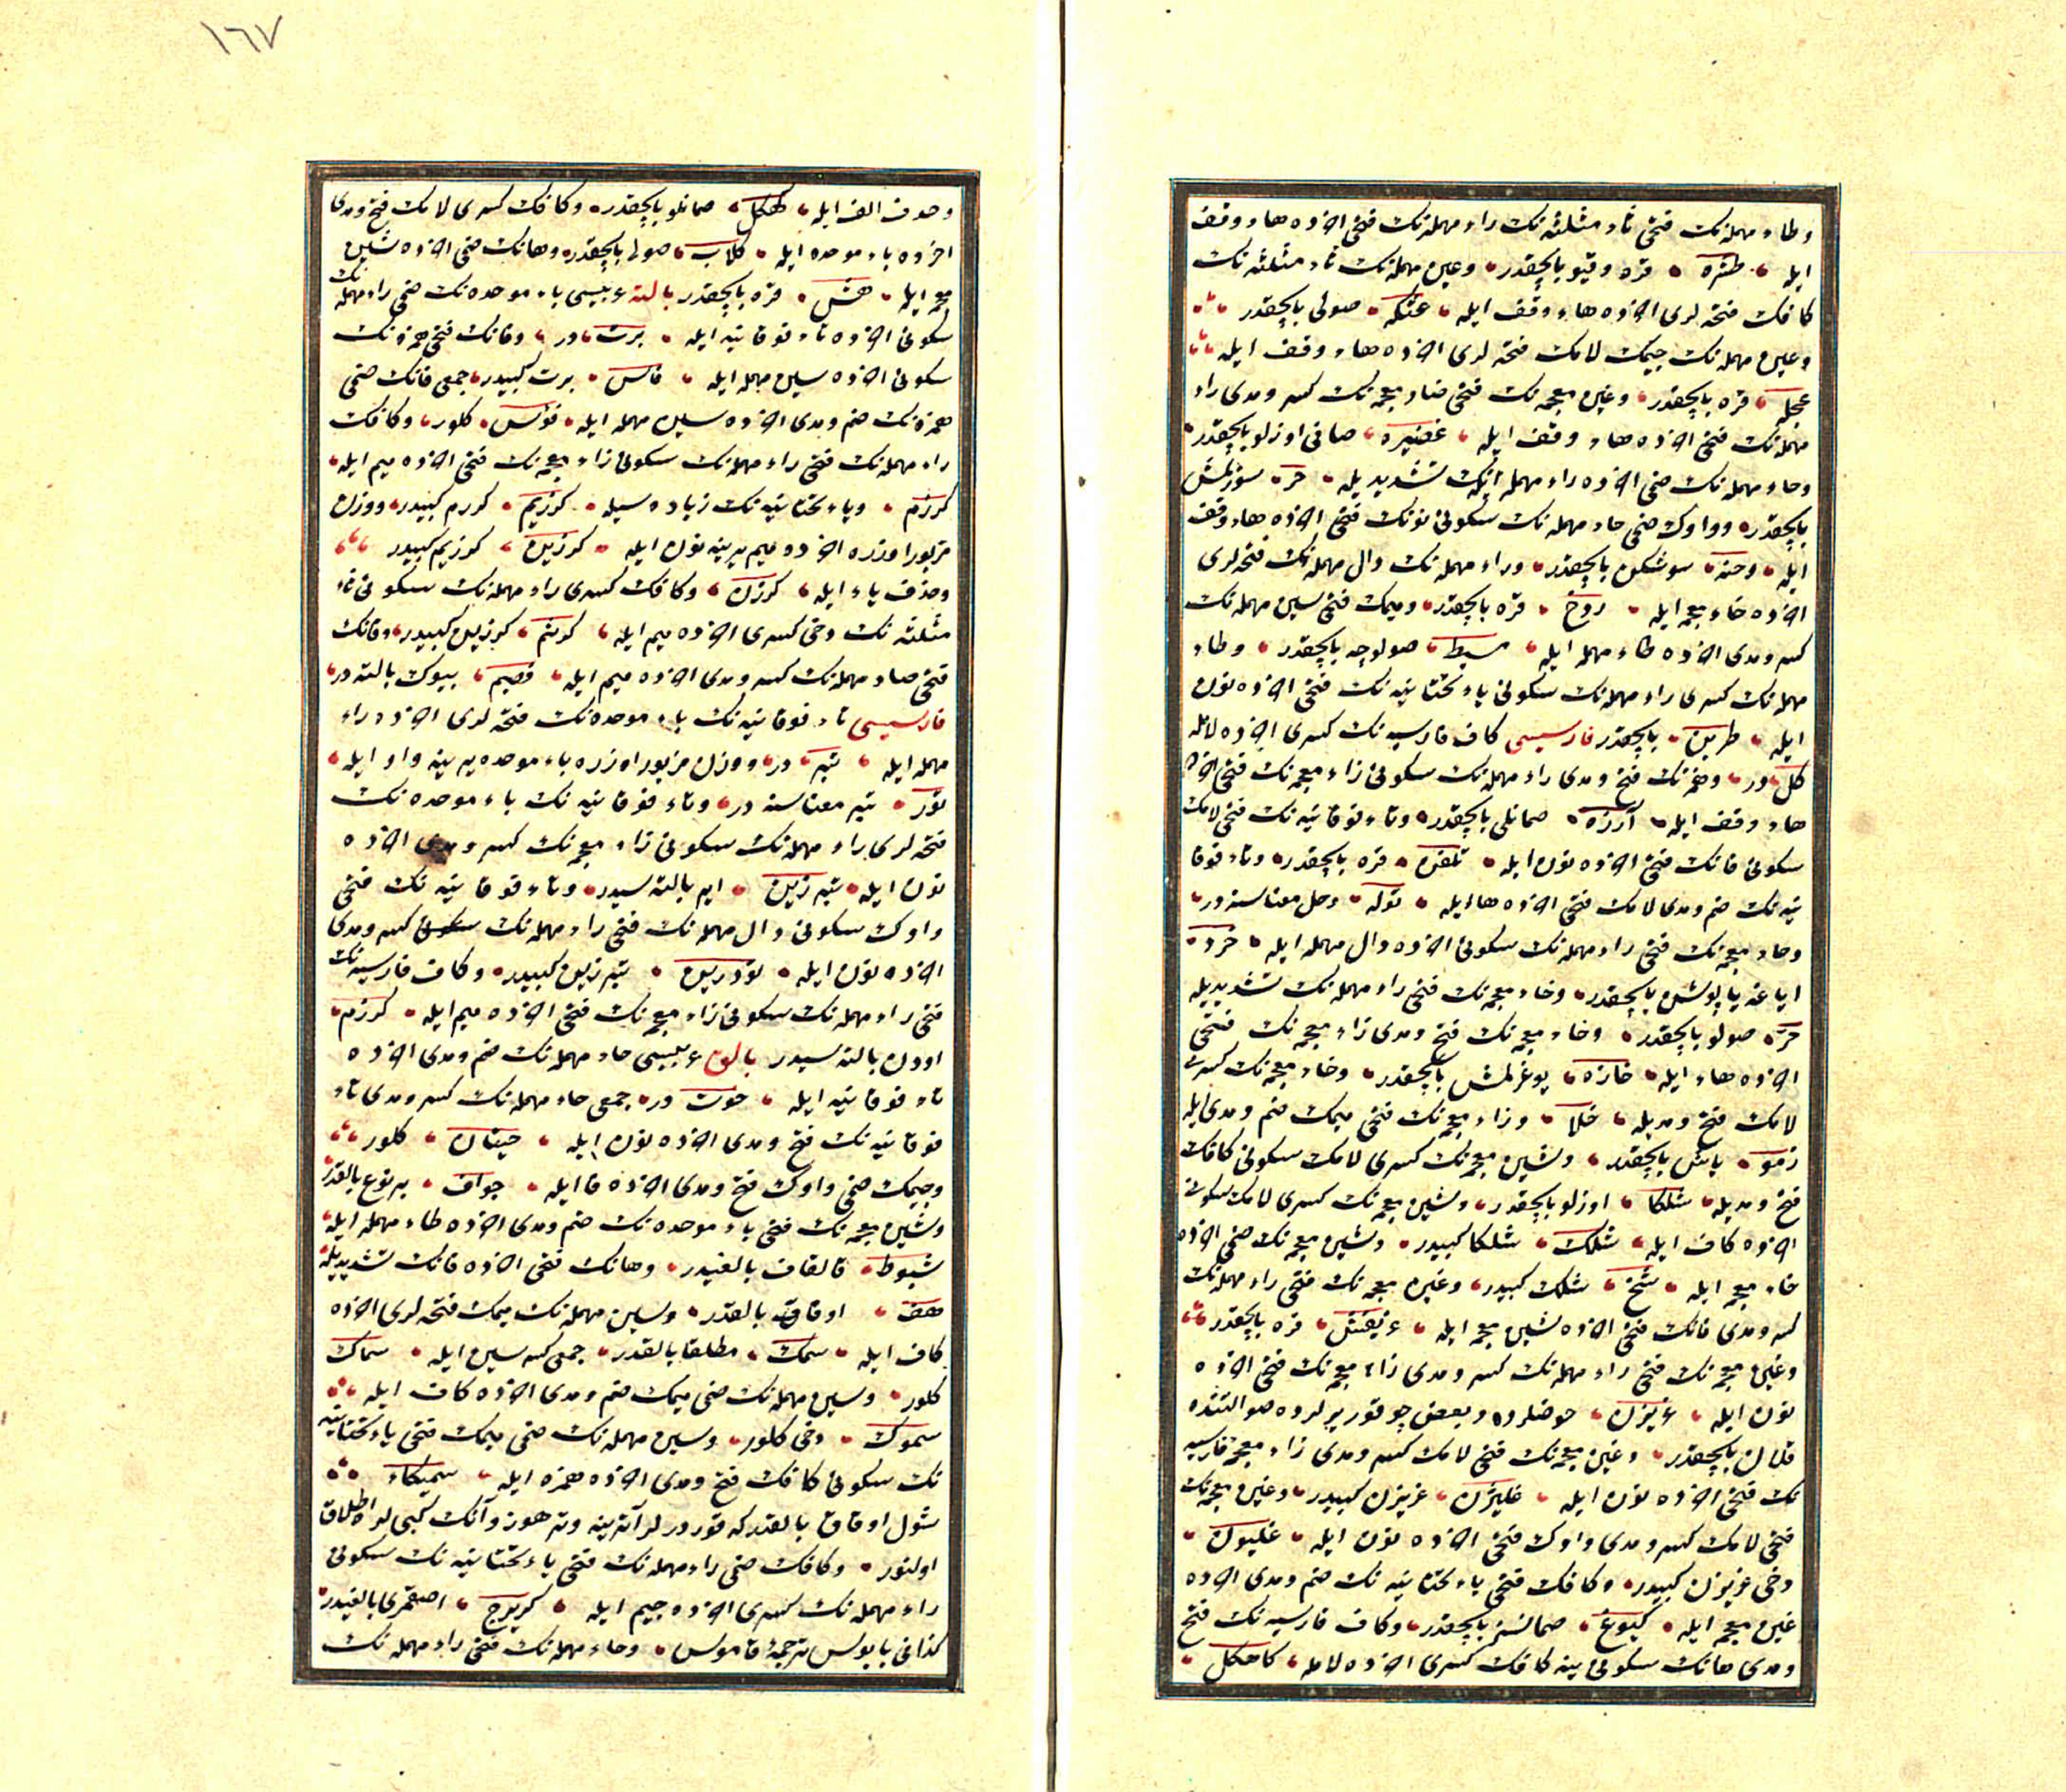 وطاء مهمله نک فتحی ثاء مثلثه نک راء مهمله نک فتحی اخرده هاء وقف
ایله طثره قره وقیو بالچقدر وعین مهمله نک ثاء مثلثه نک
کافک فتحه لری اخرده هاء وقف ایله عثکه صولی بالچقدر
وعین مهمله نک جیمک لامک فتحه لری اخرده هاء وقف ایله
عجله قره بالچقدر وغین معجمه نک فتحی ضاد معجمه نک کسر ومدی راء
مهمله نک فتحی اخرده هاء وقف ایله غضیره صافی اوزلو بالچقدر
وحاء مهمله نک ضمی اخرده راء مهمله انک تشدیدیله حر سوزلمش
بالچقدر وواوک ضمی حاء مهمله نک سکونی نونک فتحی اخرده هاء وقف
ایله وحنه بالچقدر وراء مهمله نک دال مهمله نک فتحه لری
اخرده خاء معجمه ایله ردخ قره بالچقدر ومیمک فتحی سین مهمله نک
کسر ومدی اخرده طاء مهمله ایله مسیط صولوجه بالچقدر وطاء
مهمله نک کسری راء مهمله نک سکونی یاء تحتانیه نک فتحی اخرده نون
ایله طرین بالچقدر فارسیسی کاف فارسیه نک کسری اخرده لامله
کل در وهمزه نک فتح ومدی راء مهمله نک سکونی زاء معجمه نک فتحی اخرده
هاء وقف ایله آرزه صمانلی بالچقدر وتاء فوقانیه نک فتحی لامک
سکونی فانک فتحی اخرده نون ایله تلفن قره بالچقدر وتاء فوقا
نیه نک ضم ومدی لامک فتحی اخرده ها ایله توله وحل معناسنه در
وخاء معجمه نک فتحی راء مهمله نک سکونی اخرده دال مهمله ایله خرد
ایاغه یاپوشن بالچقدر وخاء معجمه نک فتحی راء مهمله نک تشدیدیله
خر صولو بالچقدر وخاء معجمه نک فتح ومدی زاء معجمه نک فتحی
اخرده هاء ایله خازه یوغرلمش بالچقدر وخاء معجمه نک کسری
لامک فتح ومدیله خلا وزاء معجمه نک فتحی میمک ضم ومدی ایله
زمو یاش بالچقدر وشین معجمه نک کسری لامک سکونی کافک
فتح ومدیله شلکا اوزلو بالچقدر وشین معجمه نک کسری لامک سکونی
اخرده کاف ایله شلک شلکا کبیدر وشین معجمه نک ضمی اخرده
خاء معجمه ایله شخ شلک کبیدر وغین معجمه نک فتحی راء مهمله نک
کسر ومدی فانک فتحی اخرده شین معجمه ایله غریفش قره بالچقدر
وغین معجمه نک فتحی راء مهمله نک کسر ومدی زاء معجمه نک فتحی اخرده
نون ایله غریزن حوضلرده وبعض چوقور یرلرده صو التنده
قلان بالچقدر وغین معجمه نک فتحی لامک کسر ومدی زاء معجمه فارسیه
نک فتحی اخرده نون ایله غلیژن غریزن کبیدر وغین معجمه نک
فتحی لامک کسر ومدی واوک فتحی اخرده نون ایله غلیون
دخی غریزن کبیدر وکافک فتحی یاء تحتانیه نک ضم ومدی اخرده
غین معجمه ایله کیوغ صمانسز بالچقدر وکاف فارسیه نک فتح
ومدی هانک سکونی ینه کافک کسری اخرده لامله کاهکل
١٦٧
وحذف الف ایله کهکل صمانلو بالچقدر وکافک کسری لامک فتح ومدی
اخرده باء موحده ایله کلاب صولی بالچقدر وهانک ضمی اخرده شین
معجمه ایله هش قره بالچقدر بالته عربیسی باء موحده نک ضمی راء مهمله نک
سکونی اخرده تاء فوقانیه ایله برت در وفانک فتحی همزه نک
سکونی اخرده سین مهمله ایله فأس برت کبیدر جمعی فانک ضمی
همزه نک ضم ومدی اخرده سین مهمله ایله فؤس کلور وکافک
راء مهمله نک فتحی راء مهمله نک سکونی زاء معجمه نک فتحی اخرده میم ایله
کرزم ویاء تحتانیه نک زیاده سیله کرزیم کرزم کبیدر ووزن
مزبور اوزره اخرده میم یرینه نون ایله کرزین کرزیم کبیدر
وحذف یاء ایله کرزن وکافک کسری راء مهمله نک سکونی ثاء
مثلثه نک دخی کسری اخرده میم ایله کرثم کرزین کبیدر وفانک
فتحی صاد مهمله نک کسر ومدی اخرده میم ایله فصیم بیوک بالته در
فارسیسی تاء فوقانیه نک باء موحده نک فتحه لری اخرده راء
مهمله ایله تبر در ووزن مزبور اوزره باء موحده یرینه واو ایله
تور تبر معناسنه در وتاء فوقانیه نک باء موحده نک
فتحه لری راء مهمله نک سکونی زاء معجمه نک کسر ومدی اخرده
نون ایله تبرزین ایر بالته سیدر وتاء فوقانیه نک فتحی
واوک سکونی دال مهمله نک فتحی راء مهمله نک کسر ومدی
اخرده نون ایله تودرین تبرزین کبیدر وکاف فارسیه نک
فتحی راء مهمله نک سکونی زاء معجمه نک فتحی اخرده میم ایله کرزم
اودون بالته سیدر بالق عربیسی حاء مهمله نک ضم ومدی اخرده
تاء فوقانیه ایله حوت در جمعی حاء مهمله نک کسر ومدی تاء
فوقانیه نک فتح ومدی اخرده نون ایله حیتان کلور
وجیمک ضمی واوک فتح ومدی اخرده فا ایله جواف بر نوع بالقدر
وشین معجمه نک فتحی باء موحده نک ضم ومدی اخرده طاء مهمله ایله
شبوط قالقان بالغیدر وهانک فتحی اخرده فانک تشدیدیله
هف اوفاق بالقدر وسین مهمله نک میمک فتحه لری اخرده
کاف ایله سمک مطلقا بالقدر جمعی کسر سین ایله سماک
کلور وسین مهمله نک ضمی میمک ضم ومدی اخرده کاف ایله
سموک دخی کلور وسین مهمله نک ضمی میمک فتحی یاء تحتانیه
نک سکونی کافک فتح ومدی اخرده همزه ایله سمیکاء
شول اوفاق بالقدر که قورودرلر
اولنور وکافک ضمی راء مهمله نک فتحی یاء تحتانیه نک سکونی
راء مهمله نک کسری اخرده جیم ایله کریرج بالغیدر
کذا فی بابوس ترجمهٔ قاموس وحاء مهمله نک فتحی راء مهمله نک